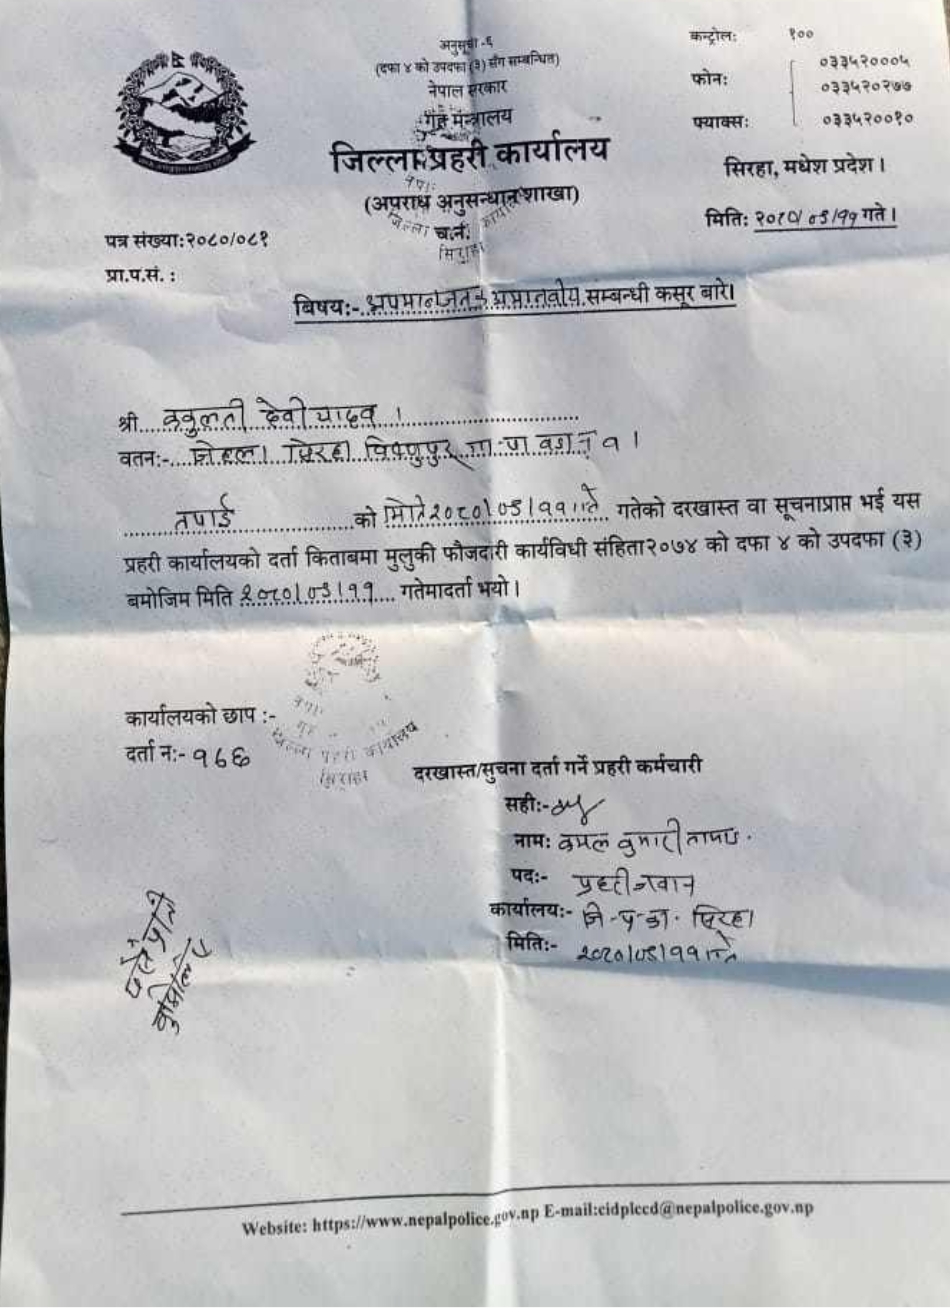 अनुसूची -६
(दफा ४ को उपदफा (३) सँग सम्बन्धित)
नेपाल सरकार
गृह मन्त्रालय
जिल्ला प्रहरी कार्यालय
(अपराध अनुसन्धान शाखा)
च.नं.
कन्ट्रोल: १००
फोन: ०३३५२०००५
०३३५२०२७७
फ्याक्स: ०३३५२००१०
सिरहा, मधेश प्रदेश ।
मिति: २०८०/०६/११ गते ।
पत्र संख्या:२०८०/०८१
प्रा.प.सं. :
बिषय:- अपमानजनक अमानवीय सम्बन्धी कसूर बारे।
श्री देवी यादव ।
वतन:- जिल्ला सिरहा विष्णुपुर गा.पा वडा नं १ ।
तपाईं को मिति २०८०/०६/११ गते गतेको दरखास्त वा सूचनाप्राप्त भई यस
प्रहरी कार्यालयको दर्ता किताबमा मुलुकी फौजदारी कार्यविधी संहिता२०७४ को दफा ४ को उपदफा (३)
बमोजिम मिति २०८०/०६/११ गतेमादर्ता भयो ।
कार्यालयको छाप :-
दर्ता न:- १६६
जिल्ला प्रहरी कार्यालय
सिराहा
दरखास्त/सुचना दर्ता गर्ने प्रहरी कर्मचारी
सही:-
नाम: कमल कुमारी
पद:- प्रहरी जवान
कार्यालय:- जि.प्र.का. सिरहा
मिति:- २०८०/०६/११ गते
Website: https://www.nepalpolice.gov.np E-mail:cidplccd@nepalpolice.gov.np